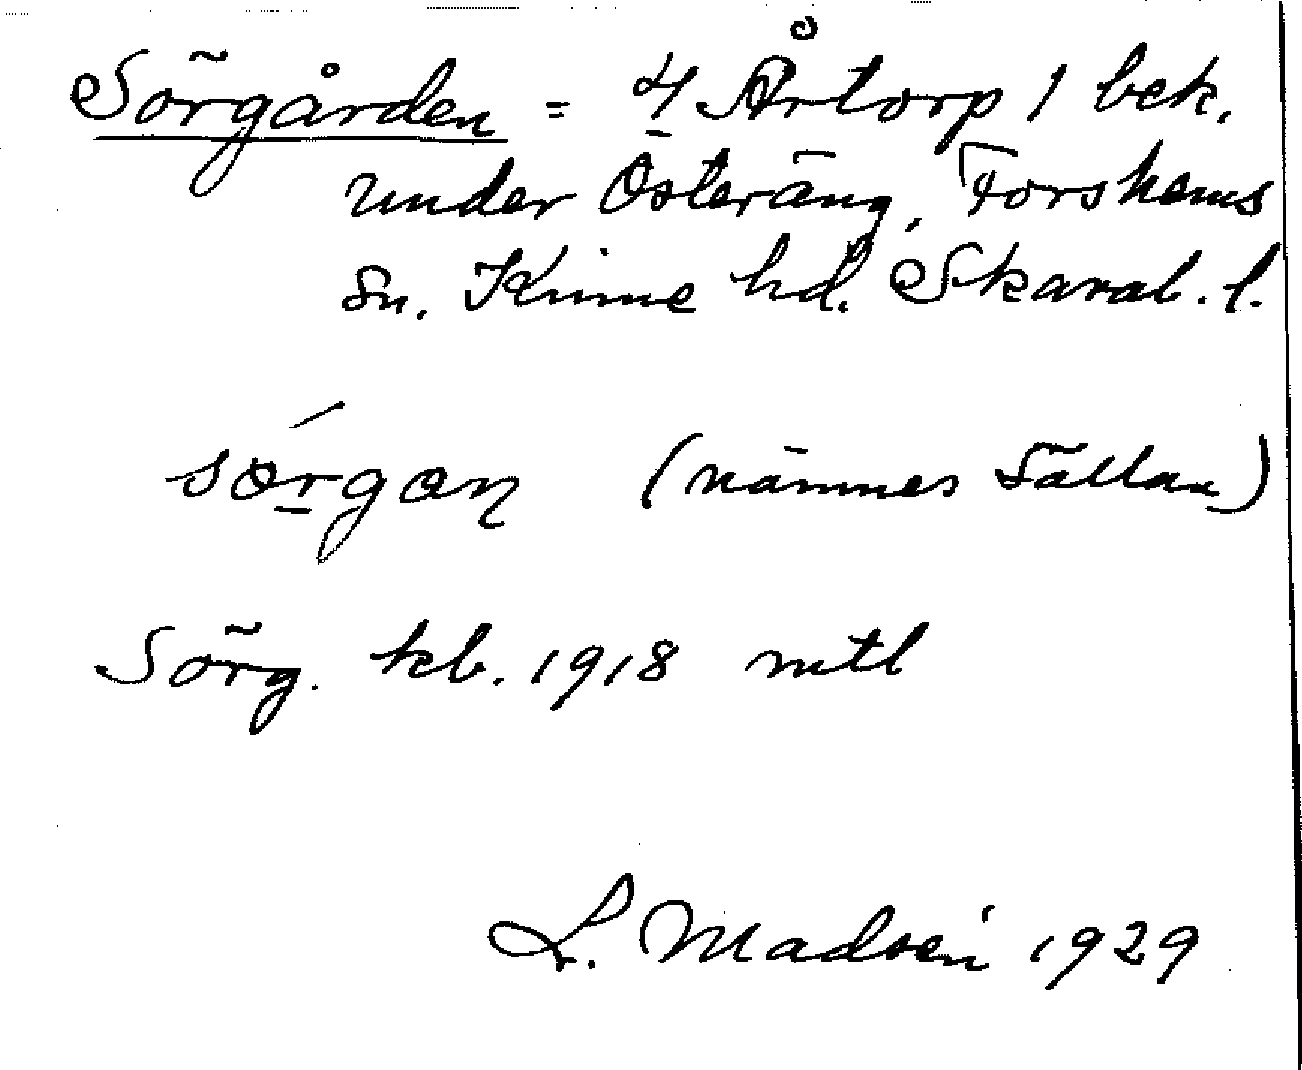 Sörgården = 4 Årtorp 1 bek.
under Österäng, Forshems
sn. Kinne hd. Skarab. l.
sǿrgan (nämnes sällan)
Sörg. kb. 1918 mtl
L. Madsén 1929